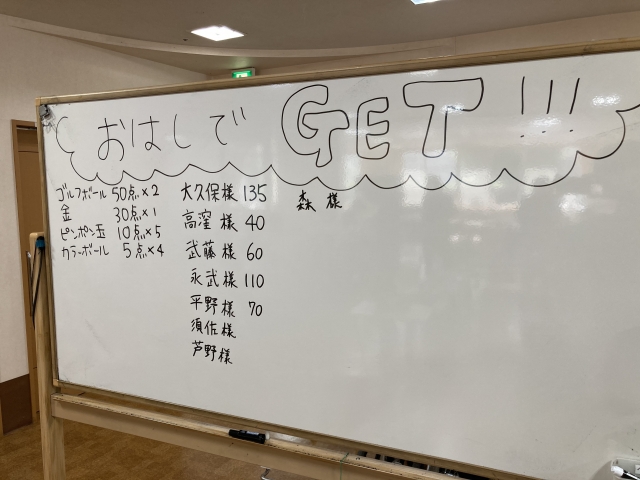 おはしで GET !!!
ゴルフボール 50点×2
金 30点×1
ピンポン玉 10点×5
カラーボール 5点×4
大久保様 135
高窪様 40
武藤様 60
永武様 110
平野様 70
須佐様
芦野様
森様